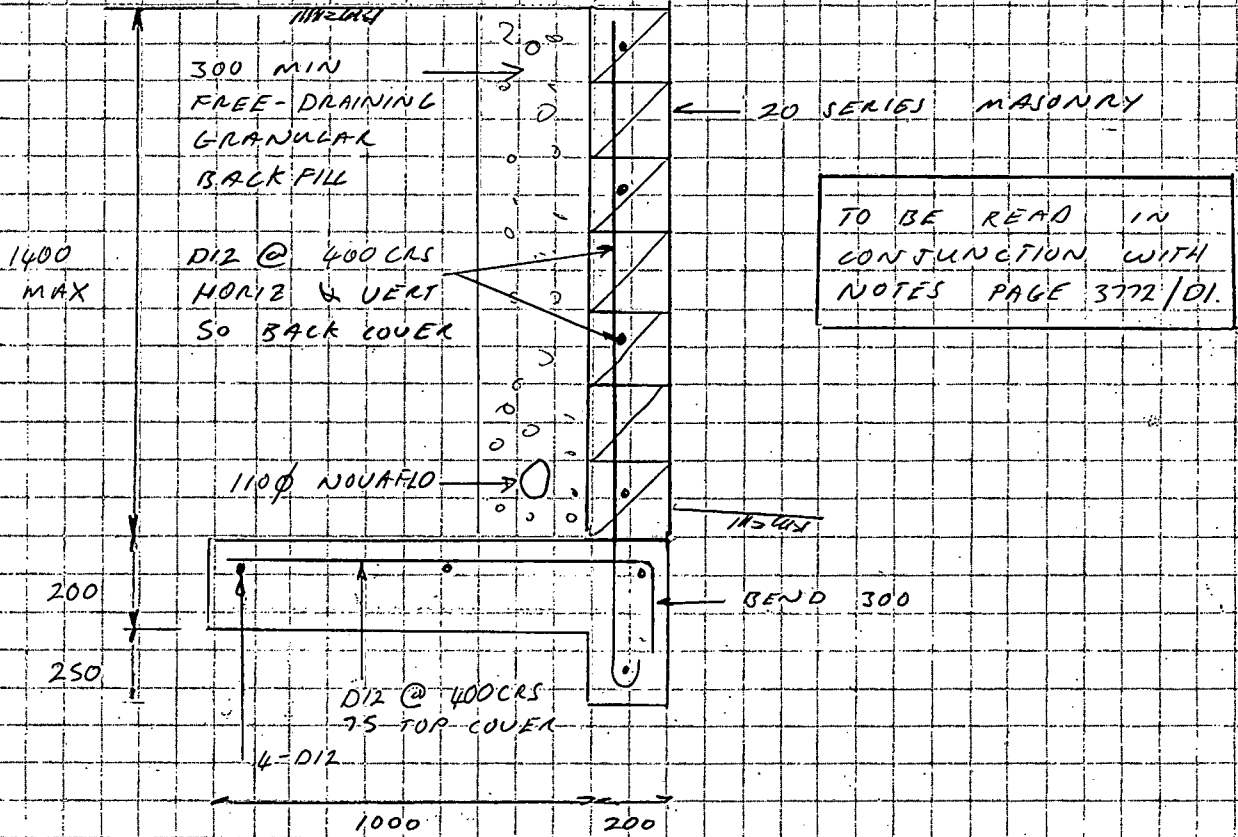 300 MIN
FREE-DRAINING
GRANULAR
BACKFILL
20 SERIES MASONRY
TO BE READ IN
CONJUNCTION WITH
NOTES PAGE 3772/D1.
1400
MAX
D12 @ 400 CRS
HORIZ & VERT
50 BACK COVER
110ϕ NOVAFLO
200
BEND 300
250
D12 @ 400CRS
75 TOP COVER
4-D12
1000
200